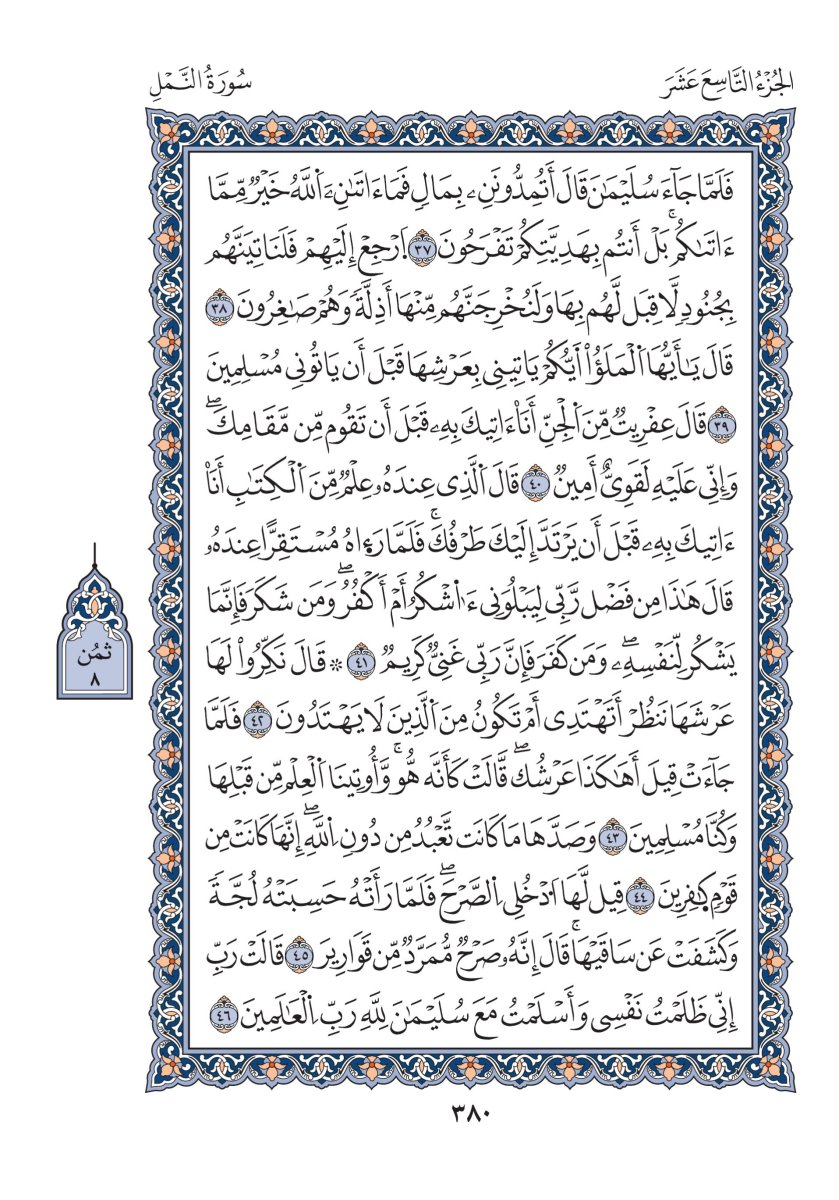 الجُزْءُ التَّاسِعَ عَشَرَ
سُورَةُ النَّمْلِ
فَلَمَّا جَآءَ سُلَيْمَٰنَ قَالَ أَتُمِدُّونَنِۦ بِمَالٍ فَمَآ ءَاتَىٰنِۦَ ٱللَّهُ خَيْرٌ مِّمَّا
ءَاتَىٰكُمۚ بَلْ أَنتُم بِهَدِيَّتِكُمْ تَفْرَحُونَ ٣٧ ٱرْجِعْ إِلَيْهِمْ فَلَنَاتِيَنَّهُم
بِجُنُودٍ لَّا قِبَل لَّهُم بِهَا وَلَنُخْرِجَنَّهُم مِّنْهَآ أَذِلَّةً وَهُمْ صَٰغِرُونَ ٣٨
قَالَ يَـٰٓأَيُّهَا ٱلْمَلَؤُا۟ أَيُّكُمْ يَاتِينِى بِعَرْشِهَا قَبْلَ أَن يَاتُونِى مُسْلِمِينَ
٣٩ قَالَ عِفْرِيتٌ مِّنَ ٱلْجِنِّ أَنَا۠ ءَاتِيكَ بِهِۦ قَبْلَ أَن تَقُوم مِّن مَّقَامِكَۖ
وَإِنِّى عَلَيْهِ لَقَوِىٌّ أَمِينٌ ٤٠ قَالَ ٱلَّذِى عِندَهُۥ عِلْمٌ مِّنَ ٱلْكِتَٰبِ أَنَا۠
ءَاتِيكَ بِهِۦ قَبْلَ أَن يَرْتَدَّ إِلَيْكَ طَرْفُكَۚ فَلَمَّا رَءَاهُ مُسْتَقِرًّا عِندَهُۥ
قَالَ هَٰذَا مِن فَضْل رَّبِّى لِيَبْلُوَنِى ءَا۬شْكُرُ أَمْ أَكْفُرُۖ وَمَن شَكَرَ فَإِنَّمَا
يَشْكُر لِّنَفْسِهِۦۖ وَمَن كَفَرَ فَإِنَّ رَبِّى غَنِىٌّ كَرِيمٌ ٤١ ۞ قَالَ نَكِّرُوا۟ لَهَا
عَرْشَهَا نَنظُرْ أَتَهْتَدِى أَمْ تَكُونُ مِنَ ٱلَّذِينَ لَا يَهْتَدُونَ ٤٢ فَلَمَّا
جَآءَتْ قِيلَ أَهَٰكَذَا عَرْشُكِۖ قَالَتْ كَأَنَّه هُّوَۚ وَّأُوتِينَا ٱلْعِلْم مِّن قَبْلِهَا
وَكُنَّا مُسْلِمِينَ ٤٣ وَصَدَّهَا مَا كَانَت تَّعْبُدُ مِن دُونِ ٱللَّهِۖ إِنَّهَا كَانَتْ مِن
قَوْمٍ كٰ۪فِرِينَ ٤٤ قِيل لَّهَا ٱدْخُلِى ٱلصَّرْحَۖ فَلَمَّا رَأَتْهُ حَسِبَتْهُ لُجَّةً
وَكَشَفَتْ عَن سَاقَيْهَاۚ قَالَ إِنَّهُۥ صَرْحٌ مُّمَرَّدٌ مِّن قَوَارِيرَ ٤٥ قَالَتْ رَبِّ
إِنِّى ظَلَمْتُ نَفْسِى وَأَسْلَمْتُ مَعَ سُلَيْمَٰنَ لِلَّهِ رَبِّ ٱلْعَٰلَمِينَ ٤٦
ثمُن
٨
٣٨٠